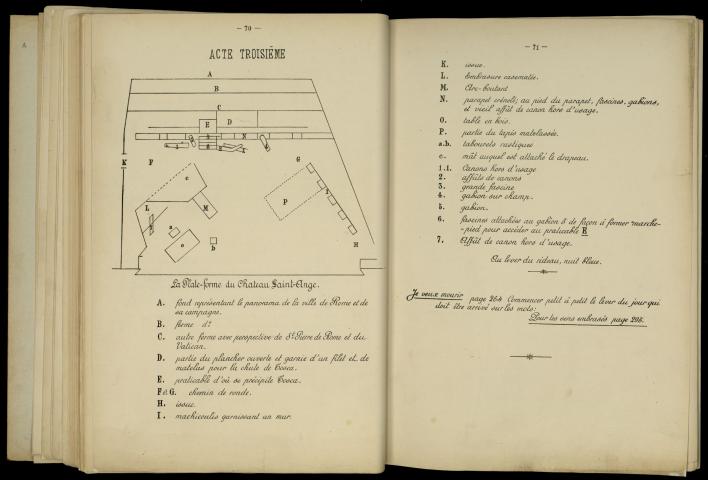 — 70 —
ACTE TROISIÈME
A
B
C
D
E
N
K
F
G
c
P
L
M
a
o
b
H
La Plate-forme du Château Saint-Ange.
A. fond représentant le panorama de la ville de Rome et de
sa campagne.
B. ferme d°
C. autre ferme avec perspective de St Pierre de Rome et du
Vatican.
D. partie du plancher ouverte et garnie d'un filet et de
matelas pour la chute de Tosca.
E. praticable d'où se précipite Tosca.
F et G. chemin de ronde.
H. issue.
I. machicoulis garnissant un mur.
— 71 —
K. issue.
L. Embrasure casematée.
M. Arc-boutant
N. parapet crénelé; au pied du parapet, fascines, gabions,
et vieil affût de canon hors d'usage.
O. table en bois.
P. partie du tapis matelassée.
a.b. tabourets rustiques
c. mât auquel est attaché le drapeau.
1.1. Canons hors d'usage
2. affûts de canons
3. grande fascine
4. gabion sur champ.
5. gabion.
6. fascines attachées au gabion 5 de façon à former marche-
-pied pour accéder au praticable E
7. Affût de canon hors d'usage.
Au lever du rideau, nuit bleue.
Je veux mourir page 264 Commencer petit à petit le lever du jour qui
doit être arrivé sur les mots:
Pour tes yeux embrasés page 298.